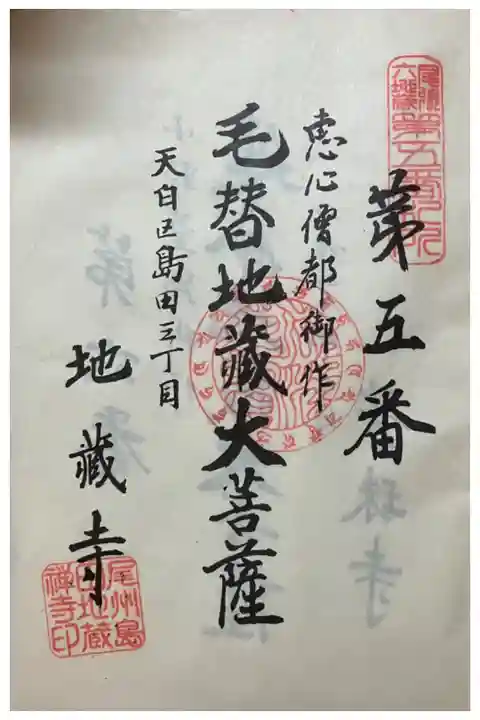 尾張
六地蔵第五番札所
第五番
恵心僧都御作
毛替地蔵大菩薩
天白区島田三丁目
地蔵寺
尾州島
田地蔵
禅寺印